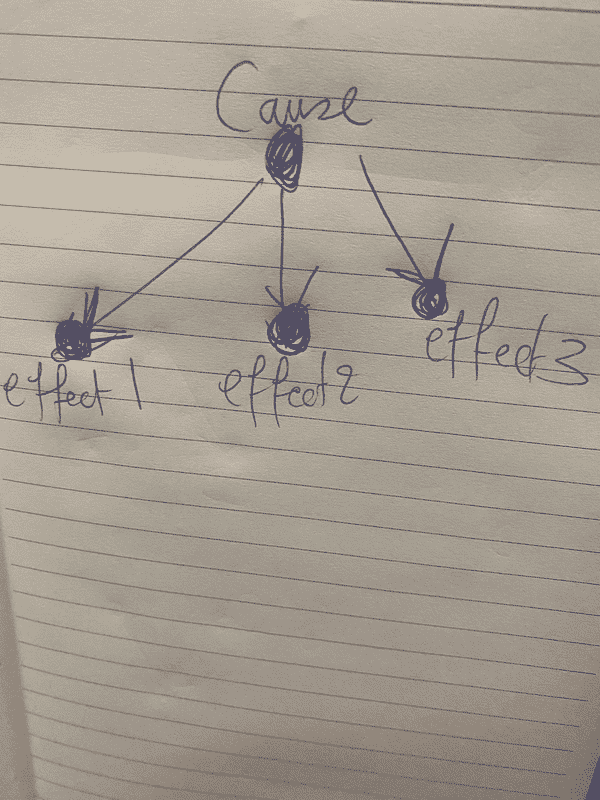 Cause
effect 1
effect 2
effect 3